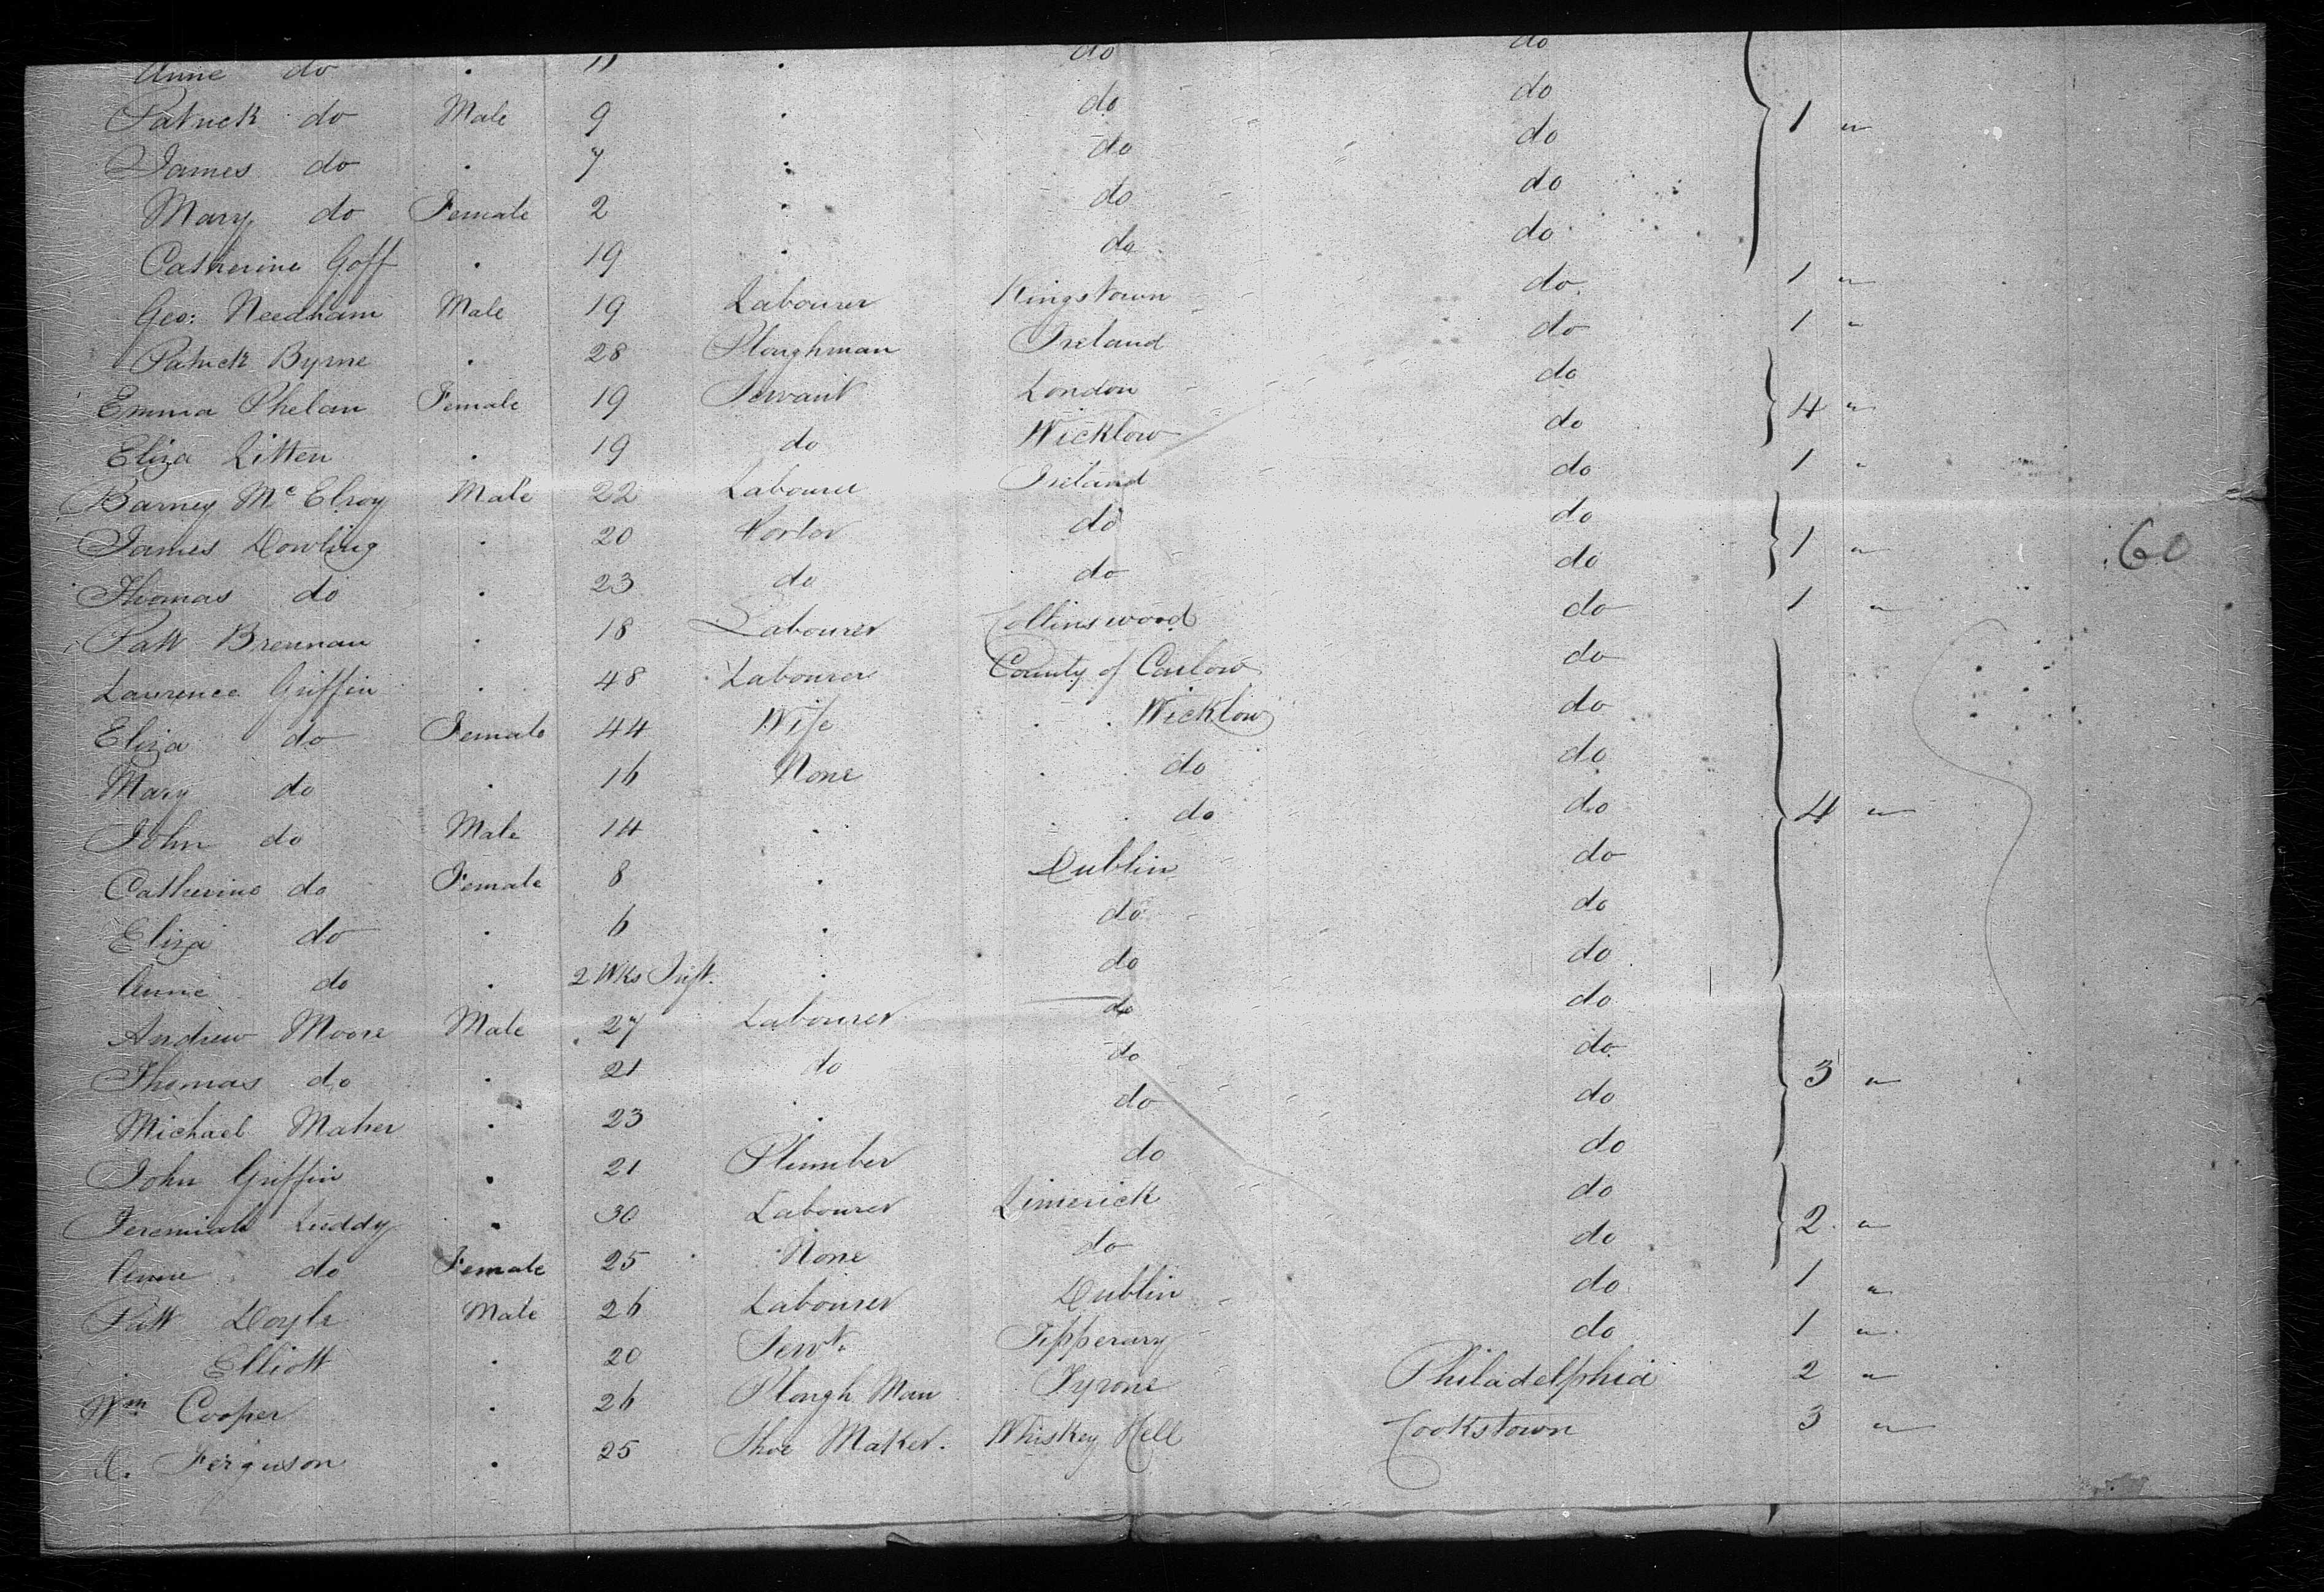 Anne do . 11 . do do
Patrick do Male 9 . do do 1 "
James do . 7 . do do
Mary do Female 2 . do do
Catherine Goff . 19 . do do
Geo: Needham Male 19 Labourer Kingstown do 1 "
Patrick Byrne . 28 Ploughman Ireland do 1 "
Emma Phelan Female 19 Servant London do 4 "
Eliza Litten . 19 do Wicklow do
Barney McElroy Male 22 Labourer Ireland do 1 "
James Dowling . 20 Porter do do 1 "
60
Thomas do . 23 do do do
Patt Brennan . 18 Labourer Collinswood do 1 "
Laurence Griffin . 48 Labourer County of Carlow do
Eliza do Female 44 Wife . . Wicklow do
Mary do . 16 None . . do do
John do Male 14 . . . do do 4 "
Catherine do Female 8 . Dublin do
Eliza do . 6 . do do
Anne do . 2 Wks Inft. . do do
Andrew Moore Male 27 Labourer do do
Thomas do . 21 do do do 3 "
Michael Maher . 23 . do do
John Griffin . 21 Plumber do do
Jeremiah Luddy . 30 Labourer Limerick do 2 "
Anne do Female 25 None do do
Patt Doyle Male 26 Labourer Dublin do 1 "
Elliott . 20 Servt. Tipperary do 1 "
Wm Cooper . 26 Plough Man Tyrone Philadelphia 2 "
D. Ferguson . 25 Shoe Maker. Whiskey Hell Cookstown 3 "